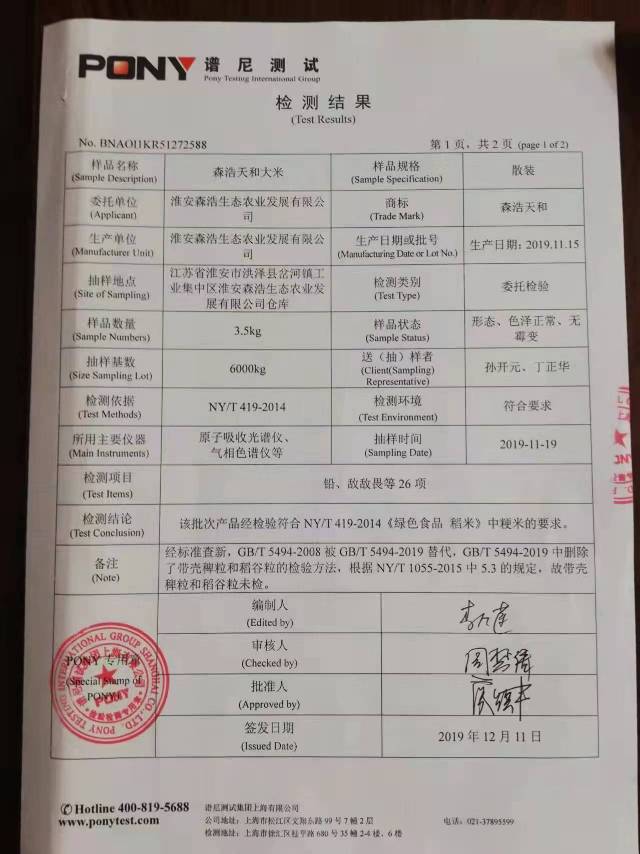 PONY 谱尼测试
Pony Testing International Group
检测结果
(Test Results)
No. BNAOI1KR51272588
第 1 页，共 2 页 (page 1 of 2)
样品名称
(Sample Description)
森浩天和大米
样品规格
(Sample Specification)
散装
委托单位
(Applicant)
淮安森浩生态农业发展有限公
司
商标
(Trade Mark)
森浩天和
生产单位
(Manufacturer Unit)
淮安森浩生态农业发展有限公
司
生产日期或批号
(Manufacturing Date or Lot No.)
生产日期: 2019.11.15
抽样地点
(Site of Sampling)
江苏省淮安市洪泽县岔河镇工
业集中区淮安森浩生态农业发
展有限公司仓库
检测类别
(Test Type)
委托检验
样品数量
(Sample Numbers)
3.5kg
样品状态
(Sample Status)
形态、色泽正常、无
霉变
抽样基数
(Size Sampling Lot)
6000kg
送（抽）样者
(Client(Sampling)
Representative)
孙开元、丁正华
检测依据
(Test Methods)
NY/T 419-2014
检测环境
(Test Environment)
符合要求
所用主要仪器
(Main Instruments)
原子吸收光谱仪、
气相色谱仪等
抽样时间
(Sampling Date)
2019-11-19
检测项目
(Test Items)
铅、敌敌畏等 26 项
检测结论
(Test Conclusion)
该批次产品经检验符合 NY/T 419-2014《绿色食品 稻米》中粳米的要求。
备注
(Note)
经标准查新，GB/T 5494-2008 被 GB/T 5494-2019 替代，GB/T 5494-2019 中删除
了带壳稗粒和稻谷粒的检验方法，根据 NY/T 1055-2015 中 5.3 的规定，故带壳
稗粒和稻谷粒未检。
PONY 专用章
(Special Stamp of
PONY)
编制人
(Edited by)
审核人
(Checked by)
批准人
(Approved by)
签发日期
(Issued Date)
2019 年 12 月 11 日
PONY TESTING INTERNATIONAL GROUP SHANGHAI CO., LTD.
PONY
Hotline 400-819-5688
www.ponytest.com
谱尼测试集团上海有限公司
公司地址: 上海市松江区文翔东路 99 号 7 幢 2 层
电话: 021-37895599
检测地址: 上海市徐汇区桂平路 680 号 35 幢 2-4 楼、6 楼